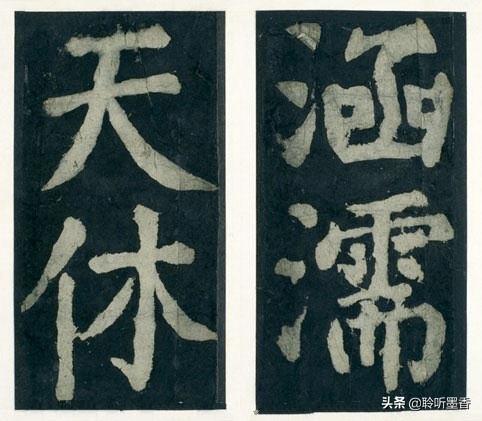 涵濡
天休
头条 @聆听墨香